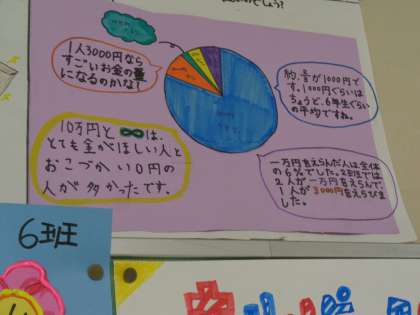 でしょう?
1人3000円なら
すごいお金の量
になるのかな?
約、を が1000円で
す。1000円ぐらいは
ちょうど、6年生ぐらい
の平均ですね。
10万円と∞は、
とても金がほしい人と
おこづかい0円の
人が多かったです。
一万円をえらんだ人は、全体
の6%でした。2班では、
2人が一万円をえらんで、
1人が3000円をえらびま
した。
6班